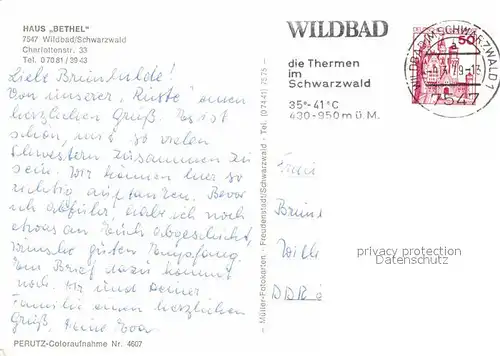 HAUS „BETHEL"
7547 Wildbad/Schwarzwald
Charlottenstr. 33
Tel. 07081/3943
Liebe Brunhulde!
Von unserer „Rüste" einen
herzlichen Gruß. Es ist
schön, mit so vielen
Schwestern zusammen zu
sein. Wir können hier so
richtig auftanken. Bevor
ich abfuhr, habe ich noch
etwas an Euch abgeschickt,
wünsche guten Empfang.
Ein Brief dazu kommt
noch. Dir und Deiner
Familie einen herzlichen
Gruß, Deine Eva
PERUTZ-Coloraufnahme Nr. 4607
Müller-Fotokarten - Freudenstadt/Schwarzwald - Tel. (07441) 7575
WILDBAD
die Thermen
im
Schwarzwald
35°-41°C
430-950m ü.M.
50
WILDBAD IM SCHWARZWALD 1
7547
Brun
Wille
DDR
privacy protection
Datenschutz